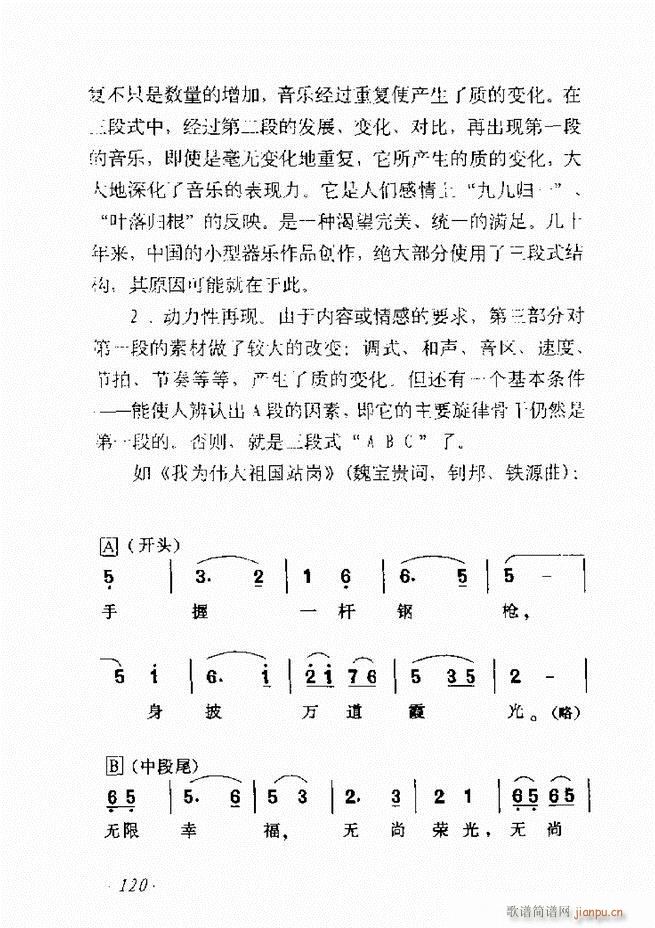 复不只是数量的增加，音乐经过重复便产生了质的变化。在
三段式中，经过第二段的发展、变化、对比，再出现第一段
的音乐，即使是毫无变化地重复，它所产生的质的变化，大
大地深化了音乐的表现力。它是人们感情上“九九归一”、
“叶落归根”的反映。是一种渴望完美、统一的满足。几十
年来，中国的小型器乐作品创作，绝大部分使用了三段式结
构，其原因可能就在于此。
2．动力性再现。由于内容或情感的要求，第三部分对
第一段的素材做了较大的改变：调式、和声、音区、速度、
节拍、节奏等等，产生了质的变化。但还有一个基本条件
——能使人辨认出A段的因素，即它的主要旋律骨干仍然是
第一段的。否则，就是三段式“ABC”了。
如《我为伟大祖国站岗》（魏宝贵词，钊邦、铁源曲）：
A（开头）
5 | 3. 2 | 1 6 | 6. 5 | 5 - |
手 握 一杆 钢 枪，
5 i | 6. i | 2 i 7 6 | 5 3 5 | 2 - |
身 披 万 道 霞 光。（略）
B（中段尾）
6 5 | 5. 6 | 5 3 | 2. 3 | 2 1 | 6 5 6 5 |
无限 幸 福， 无 尚 荣光，无 尚
·120·
歌谱简谱网 jianpu.cn